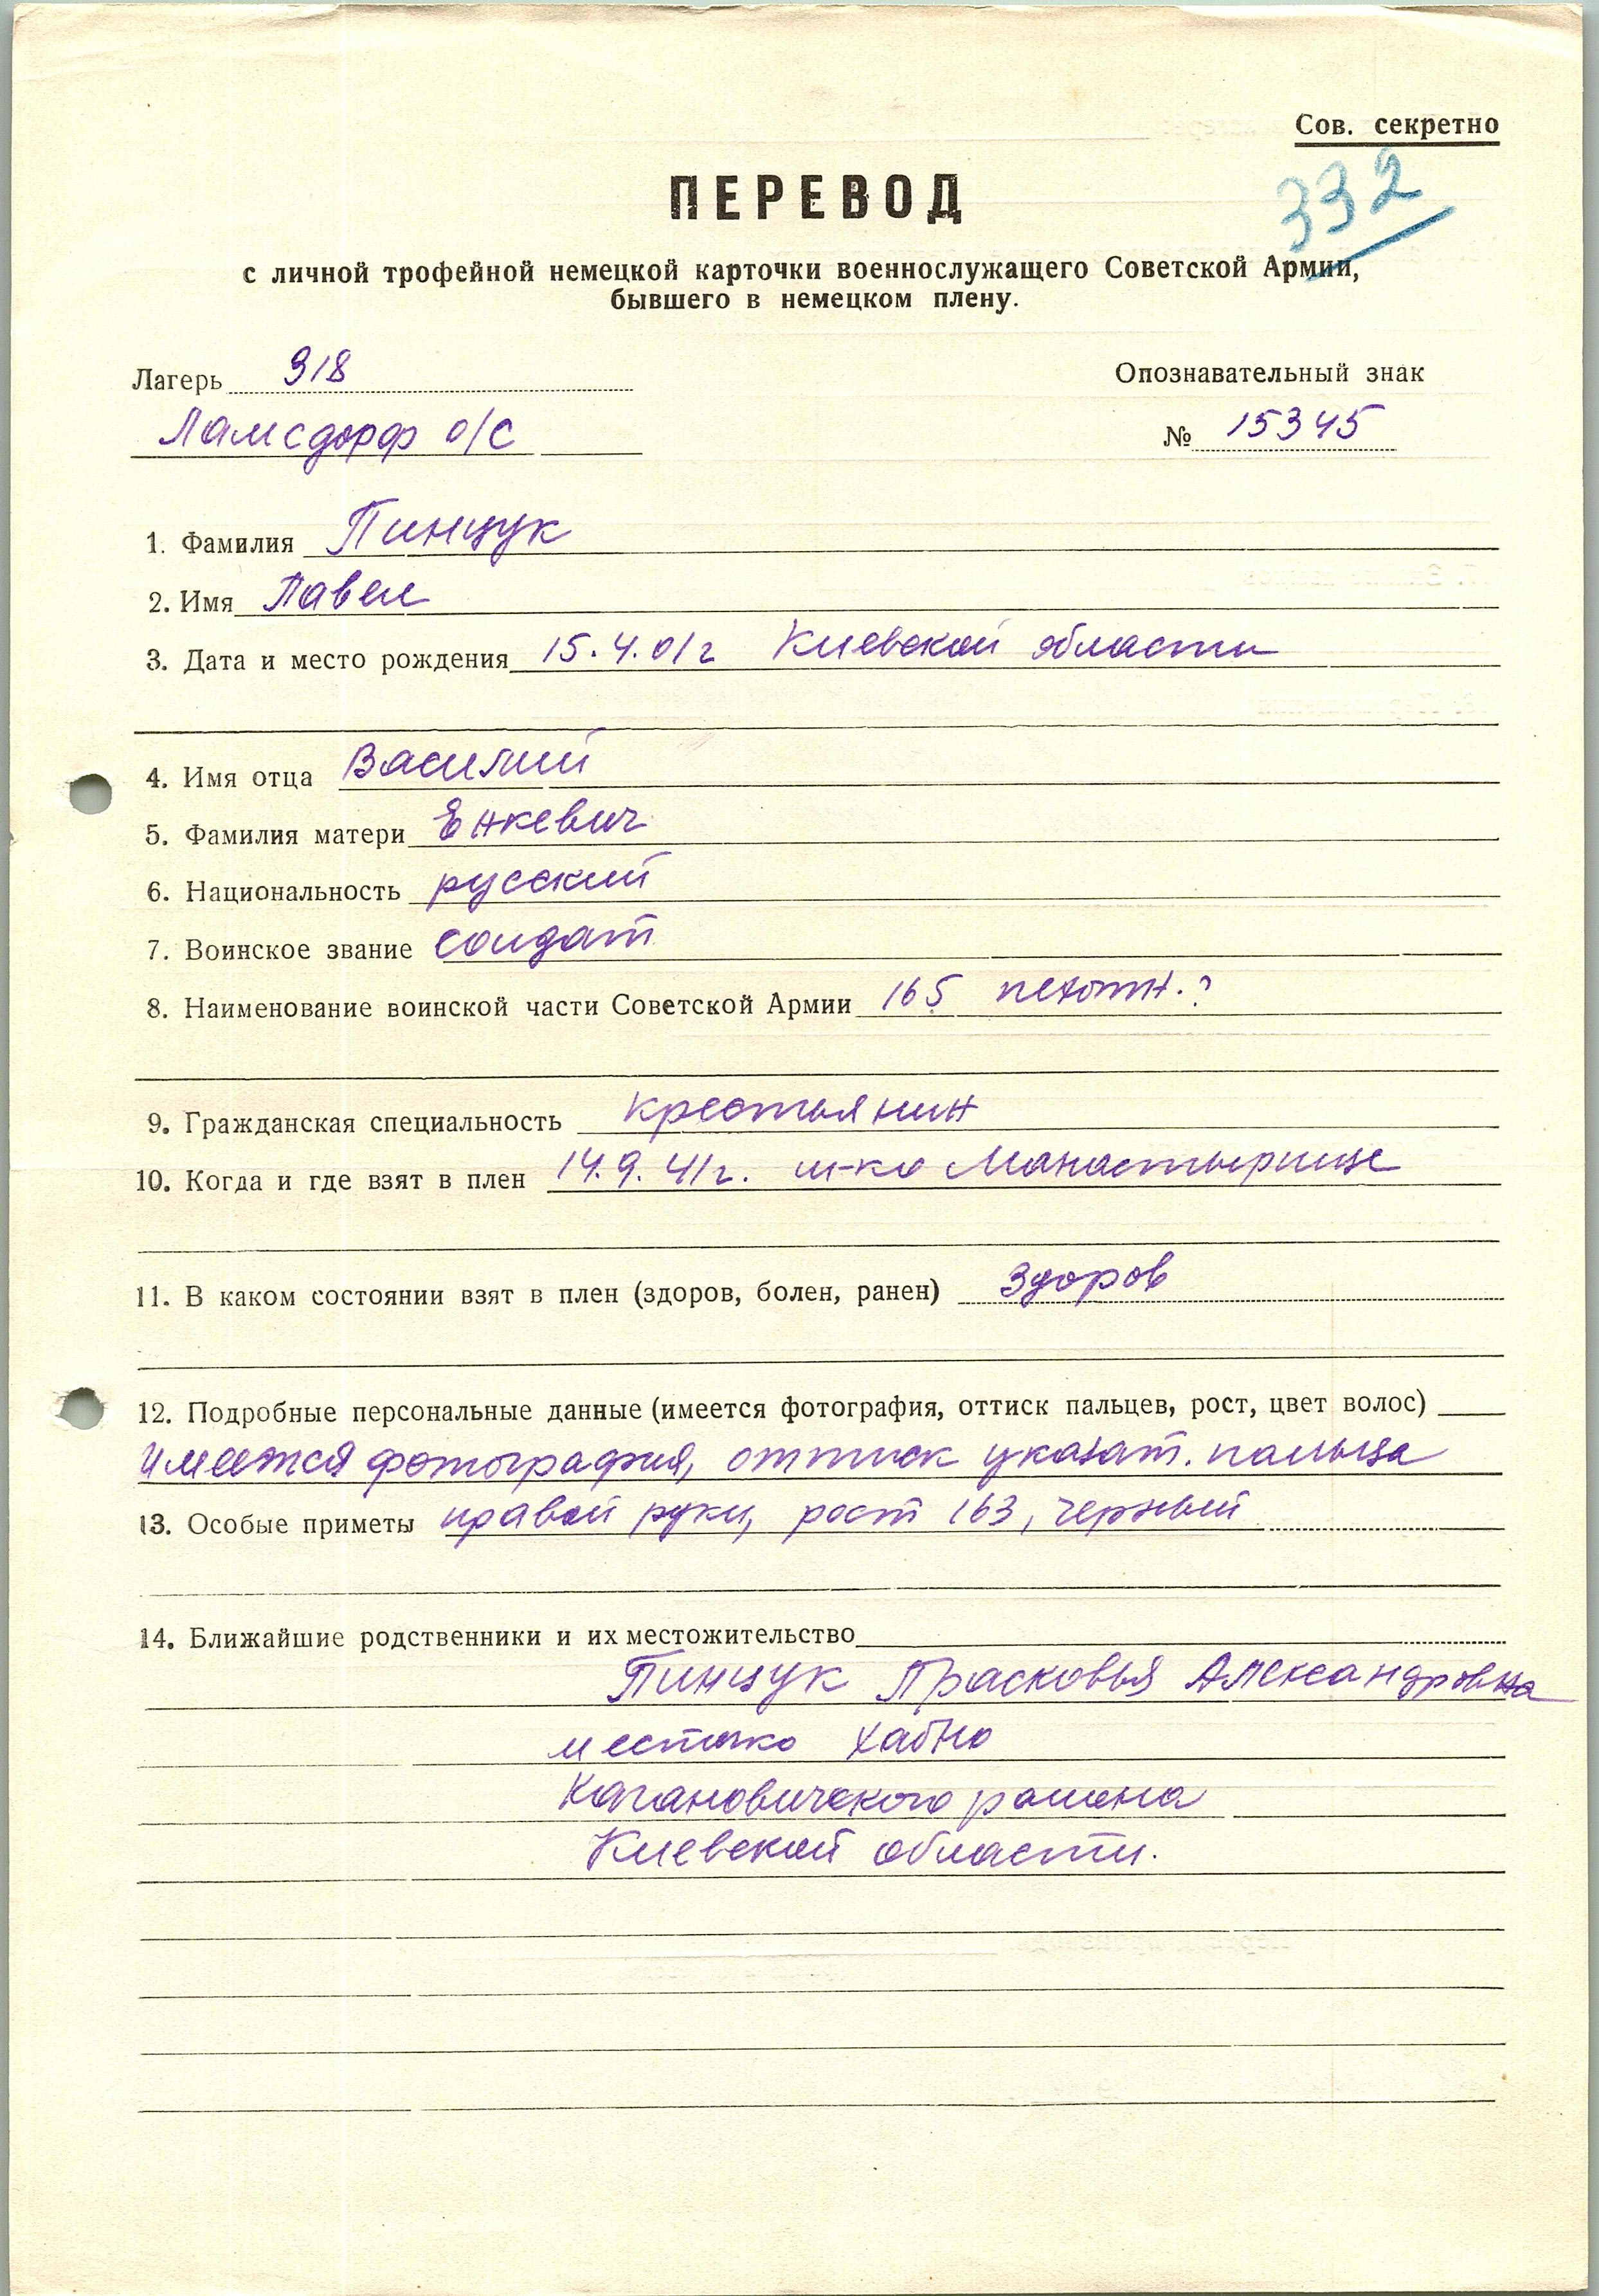 Сов. секретно
332
ПЕРЕВОД
с личной трофейной немецкой карточки военнослужащего Советской Армии,
бывшего в немецком плену.
Лагерь 318
Опознавательный знак
Ламсдорф о/с
№ 15345
1. Фамилия Пинцук
2. Имя Павел
3. Дата и место рождения 15.4.01г Киевской области
4. Имя отца Василий
5. Фамилия матери Енкевич
6. Национальность русский
7. Воинское звание солдат
8. Наименование воинской части Советской Армии 165 пехотн.?
9. Гражданская специальность крестьянин
10. Когда и где взят в плен 14.9.41г. м-ко Манастырище
11. В каком состоянии взят в плен (здоров, болен, ранен) Здоров
12. Подробные персональные данные (имеется фотография, оттиск пальцев, рост, цвет волос)
Имеется фотография, оттиск указат. пальца
13. Особые приметы правой руки, рост 163, черный
14. Ближайшие родственники и их местожительство
Пинцук Прасковья Александровна
местечко Хабно
Кагановичского района
Киевской области.